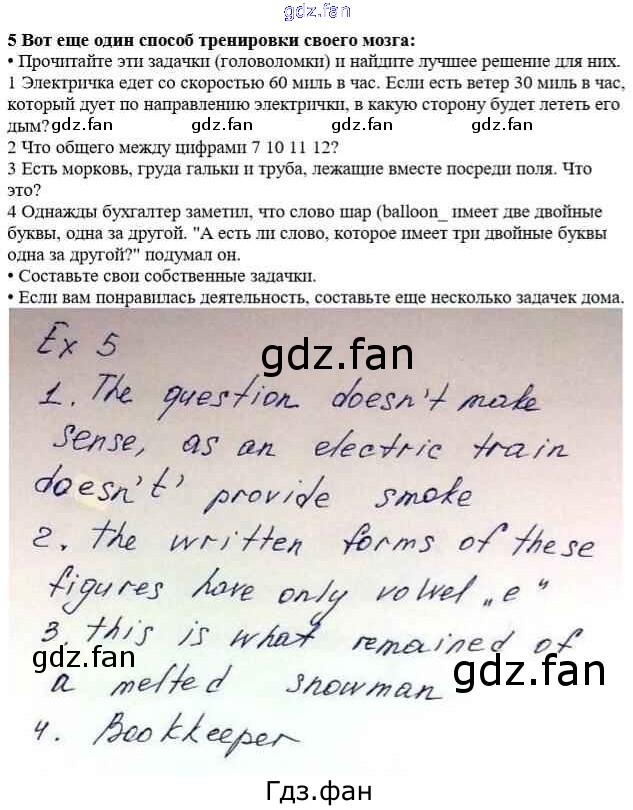 gdz.fan
5 Вот еще один способ тренировки своего мозга:
• Прочитайте эти задачки (головоломки) и найдите лучшее решение для них.
1 Электричка едет со скоростью 60 миль в час. Если есть ветер 30 миль в час,
который дует по направлению электрички, в какую сторону будет лететь его
дым? gdz.fan gdz.fan gdz.fan gdz.fan
2 Что общего между цифрами 7 10 11 12?
3 Есть морковь, груда гальки и труба, лежащие вместе посреди поля. Что
это?
4 Однажды бухгалтер заметил, что слово шар (balloon_ имеет две двойные
буквы, одна за другой. "А есть ли слово, которое имеет три двойные буквы
одна за другой?" подумал он.
• Составьте свои собственные задачки.
• Если вам понравилась деятельность, составьте еще несколько задачек дома.
Ex 5
gdz.fan
1. The question doesn't make
sense, as an electric train
doesn't' provide smoke
2. the written forms of these
figures have only volvel „e"
3. this is what remained of
gdz.fan
a melted snowman
gdz.fan
4. Bookkeeper
Гдз.фан